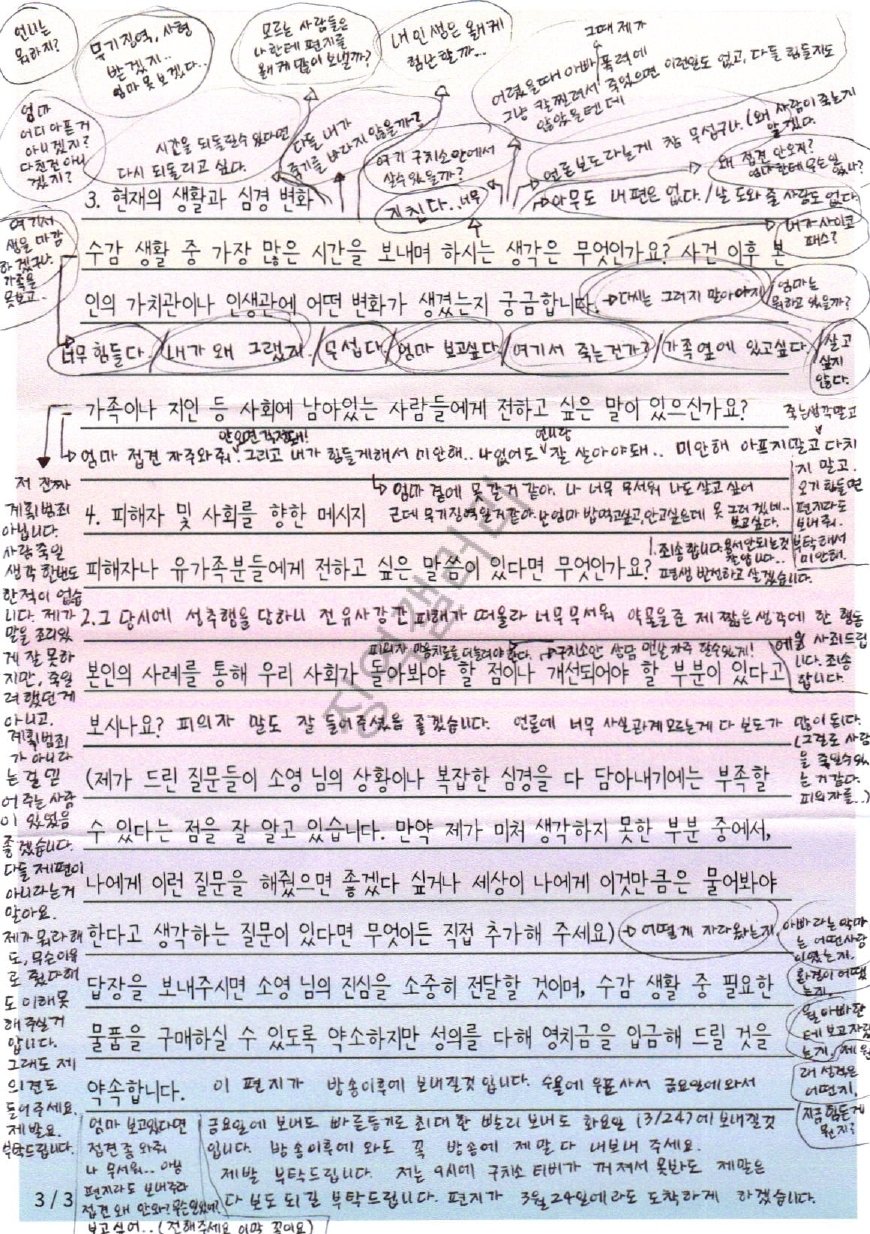 언니는
뭐라지?
무기징역, 사형
받겠지..
엄마 못 보겠다..
모르는 사람들은
나한테 편지를
왜케 많이 보낼까?
내 인생은 왜케
험난할까...
그때 제가
어렸을때 아빠 폭력에
그냥 칼 찔려서 죽었으면 이런일도 없고, 다들 힘들지도
않았을텐데
엄마
어디 아픈거
아니겠지?
다친건 아니
겠지?
시간을 되돌릴수 있다면
다시 되돌리고 싶다.
다들 내가
죽기를 바라지 않을까?
여기 구치소안에서
살수 있을까?
언론보도라는게 참 무섭구나. (왜 사람이 죽는지
알겠다.
왜 접견 안오지?
엄마한테 무슨일
있나?
지친다..너무
아무도 내 편은 없다. / 날 도와 줄 사람도 없다
3. 현재의 생활과 심경 변화
여기서
생을 마감
하겠구나.
가족을
못보고..
내가 사이코
패스?
수감 생활 중 가장 많은 시간을 보내며 하시는 생각은 무엇인가요? 사건 이후 본
인의 가치관이나 인생관에 어떤 변화가 생겼는지 궁금합니다. → 다시는 그러지 말아야지
엄마는
뭐하고 있을까?
너무 힘들다. / 내가 왜 그랬지 / 무섭다 / 엄마 보고싶다 / 여기서 죽는건가? / 가족옆에 있고싶다 / 살고
싶지
않다.
가족이나 지인 등 사회에 남아있는 사람들에게 전하고 싶은 말이 있으신가요?
안오면 걱정돼!
언니랑
엄마 접견 자주와줘. 그리고 내가 힘들게해서 미안해.. 나 없어도 잘 살아야돼.. 미안해 아프지말고 다치
지 말고.
죽는생각말고
오기 힘들면
편지라도
보내줘.
부탁해서
미안해.
엄마 곁에 못 갈거 같아. 나 너무 무서워 나도 살고 싶어
근데 무기징역일거같아. 난 엄마 밥 먹고싶고, 안고싶은데 못 그러겠네..
보고싶다.
4. 피해자 및 사회를 향한 메시지
피해자나 유가족분들에게 전하고 싶은 말씀이 있다면 무엇인가요?
1. 죄송합니다. 용서안되는것
알압니다..
평생 반성하고 살겠습니다.
2. 그 당시에 성추행을 당하니 전 유사강간 피해가 떠올라 너무 무서워 약물을 준 제 짧은 생각에 한 행동
에 사죄드립
니다. 죄송
합니다.
피의자 마음치료를 더 늘려야 한다. → 구치소안 상담 면담 자주 할수있게!
본인의 사례를 통해 우리 사회가 돌아봐야 할 점이나 개선되어야 할 부분이 있다고
보시나요? 피의자 말도 잘 들어주셨음 좋겠습니다. 언론에 너무 사실관계모르는게 다 보도가 많이 된다.
(그걸로 사람
을 죽일수 있
는 거 같다.
피의자를..)
(제가 드린 질문들이 소영 님의 상황이나 복잡한 심경을 다 담아내기에는 부족할
수 있다는 점을 잘 알고 있습니다. 만약 제가 미처 생각하지 못한 부분 중에서,
나에게 이런 질문을 해줬으면 좋겠다 싶거나 세상이 나에게 이것만큼은 물어봐야
한다고 생각하는 질문이 있다면 무엇이든 직접 추가해 주세요) → 어떻게 자라왔는지,
아빠라는 악마
는 어떤사람
이었는지.
환경이 어땠
는지.
답장을 보내주시면 소영 님의 진심을 소중히 전달할 것이며, 수감 생활 중 필요한
물품을 구매하실 수 있도록 약소하지만 성의를 다해 영치금을 입금해 드릴 것을
성격은
어떤지.
지금 힘든게
뭔지?
약속합니다. 이 편지가 방송이후에 보내질것 입니다. 수욜에 우표사서 금요일에 와서
금요일에 보내도 빠른등기로 최대한 빨리 보내도 화요일 (3/24)에 보내질것
입니다. 방송이후에 와도 꼭 방송에 제 말 다 내보내 주세요.
제발 부탁드립니다. 저는 9시에 구치소 티비가 꺼져서 못봐도 제말은
다 보도 되길 부탁드립니다. 편지가 3월24일에라도 도착하게 하겠습니다.
저 진짜
계획범죄
아닙니다.
사람 죽일
생각 한번도
한적이 없습
니다. 제가
말을 조리있
게 잘 못하
지만, 죽일
려했던게
아니고.
계획범죄
가 아니라
는걸 믿
어 주는 사람
이 있었음
좋겠습니다.
다들 제편이
아니라는거
알아요.
제가 뭐라해
도, 무슨이유
로 줬다해
도 이해 못
해주실거
압니다.
그래도 제
의견도
들어주세요.
제발요.
부탁드립니다.
엄마 보고있다면
접견 좀 와줘
나 무서워.. 아님
편지라도 보내주라
접견 왜 안와? 무슨일있어?
보고싶어.. (전해주세요 이막 꼭이요)
3 / 3
징역갤러리